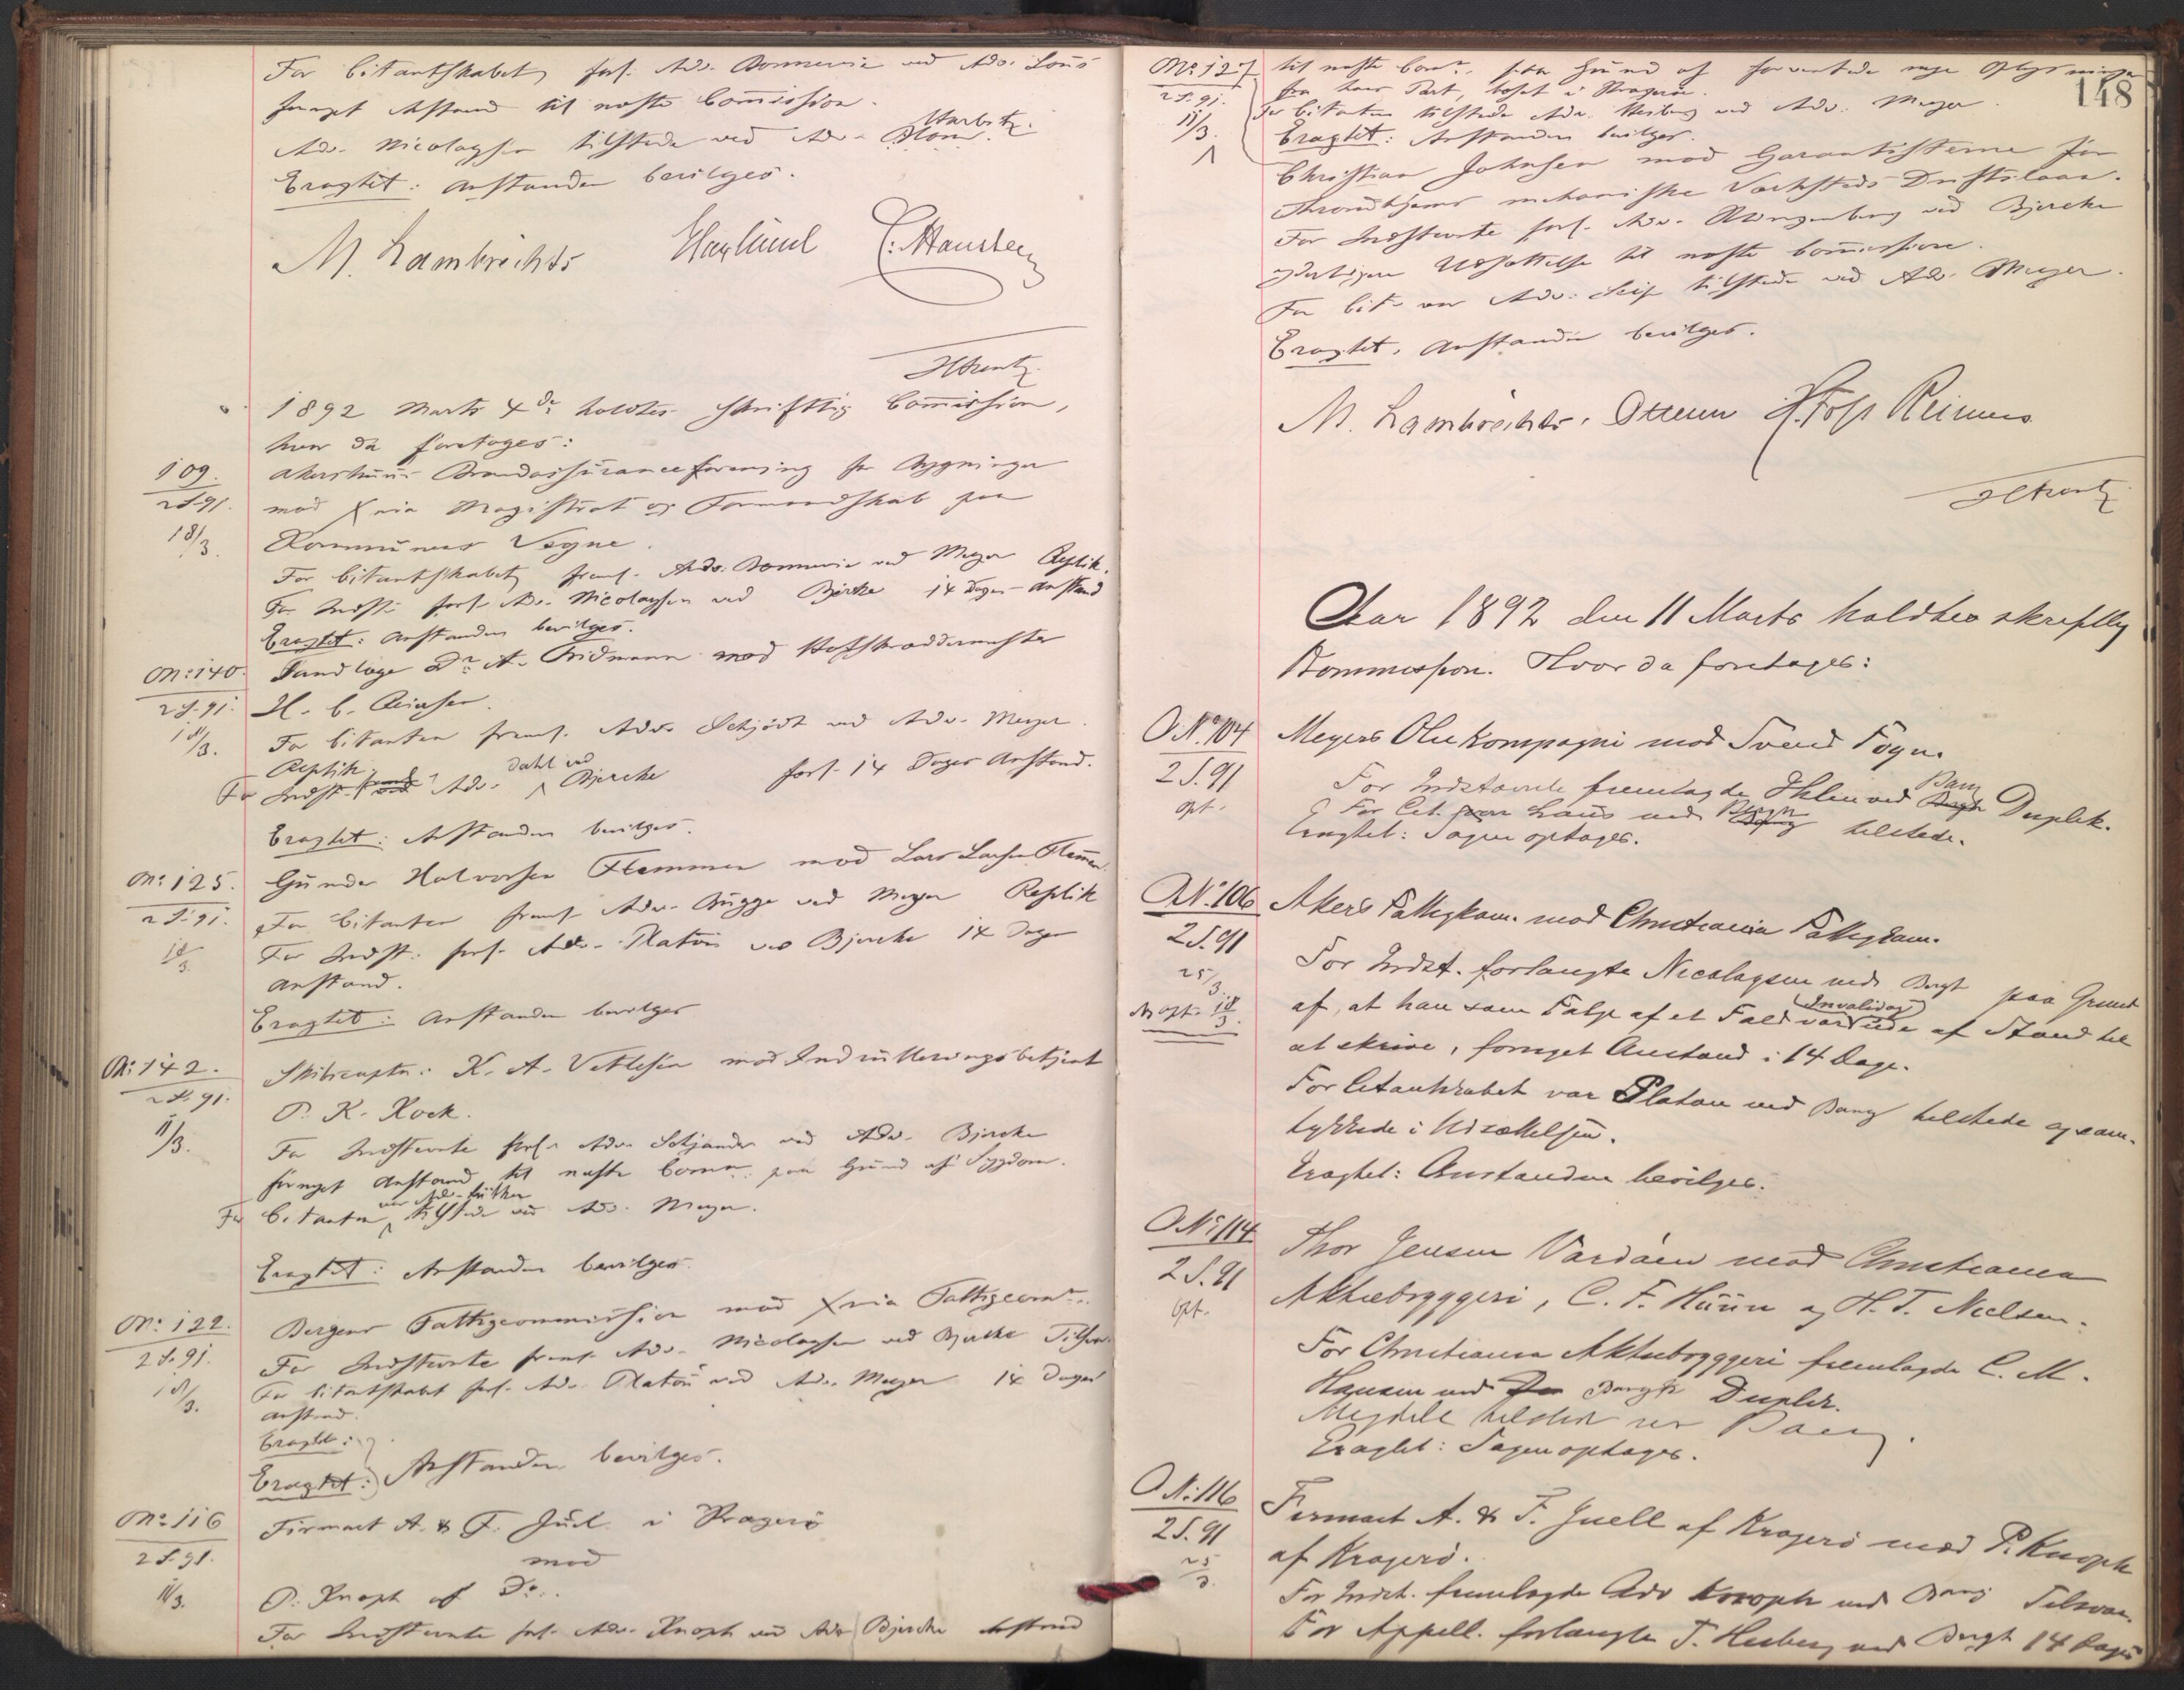 For Citantskabet forl. Adv. Bonnevie ved Adv. Lous
fornyet Anstand til næste Commission.
Adv. Nicolaysen tilstede ved Adv. Harbitz.
Eragtet: Anstanden bevilges.
M. Lambrechts Haslund C. Hansteen
1892 Marts 4de holdtes skriftlig Commission,
hvor da foretoges:
109.
2 S. 91.
18/3.
Akershuus Brandassuranceforening for Bygninger
mod Xnia Magistrat og Formandskab paa
Kommunens Vegne.
For Citantskabet freml. Adv. Bonnevie ved Meyer Replik.
For Indst. forl. Adv. Nicolaysen ved Bjercke 14 Dages Anstand
Eragtet: Anstanden bevilges.
No: 140.
2 S. 91.
18/3.
Tandlæge Dr A. Tidmann mod Hofskræddermester
H. C.
For Citanten freml. Adv. Schjødt ved Adv. Meyer.
Replik.
For Indst. Adv. Dahl ved Bjercke forl. 14 Dages Anstand.
Eragtet: Anstanden bevilges.
No: 125.
2 S. 91.
18/3.
Gunder Halvorsen Flemmen mod Lars Larsen Flemmen
For Citanten freml. Adv. Bugge ved Meyer Replik
For Indst. forl. Adv. Platou ved Bjercke 14 Dages
Anstand.
Eragtet: Anstanden bevilges
No: 142.
2 S. 91.
11/3.
Skibscaptn: K. A. Vetlesen mod Indrulleringsbetjent
P. K. Kock.
For Indstevnte forl. Adv. Schjander ved Adv. Bjercke
fornyet Anstand til næste Comn. paa Grund af Sygdom.
For Citanten var Adv. Lütken tilstede ved Adv. Meyer.
Eragtet: Anstanden bevilges.
No: 122.
2 S. 91.
18/3.
Bergens Fattigcommission mod Xnia Fattigcomn.
For Indstevnte freml. Adv. Nicolaysen ved Bjercke Tilsvar.
For Citantskabet forl. Adv. Platou ved Adv. Meyer 14 Dages
Anstand.
Eragtet:
Eragtet: Anstanden bevilges.
No: 116
2 S. 91.
11/3.
Firmaet A. & F. Juel i Kragerø
mod
P. Knoph af Do.
For Indstevnte forl. Adv. Knoph ved Adv Bjercke Anstand
148
No: 127
2 S. 91.
11/3.
til næste Comn. paa Grund af forventede nye Oplysninger
fra hans Part, bosat i Kragerø.
For Citanten tilstede Adv. Heiberg ved Adv. Meyer.
Eragtet: Anstanden bevilges.
Christian Johnsen mod Garantisterne for
Throndhjems mekaniske Værksteds Driftslaan.
For Indstevnte forl. Adv. Klingenberg ved Bjercke
yderligere Udsættelse til næste Commission.
For Cit. var Adv. Seip tilstede ved Adv. Meyer.
Eragtet: Anstanden bevilges.
M. Lambrechts. Ottesen H. Foss Reimers
Aar 1892 den 11 Marts holdtes skriftlig
Kommission. Hvor da foretoges:
O. No. 104
2 S. 91
opt.
Meyers Oliekompagni mod Svend Foyn.
For Indstævnte fremlagde Ihlen ved Bang Duplik.
For Cit. Lous ved Bergh tilstede.
Eragtet: Sagen optages.
O. No. 106
2 S. 91
25/3
Akers Fattigkom. mod Christiania Fattigkom.
For Indst. forlangte Nicolaysen ved Bergh paa Grund
af, at han som Følge af et Fald (Invalidag) var ude af Stand til
at skrive, fornyet Anstand i 14 Dage.
For Citantskabet var Platou ved Bang tilstede og sam-
tykkede i Udsættelsen.
Eragtet: Anstanden bevilges.
O. No. 114
2 S. 91
Opt.
Thor Jensen Vardåen mod Christiania
Aktiebryggeri, C. F. Huun og H. T. Nielsen.
For Christiania Aktiebryggeri fremlagde C. M.
Hansen ved Bergh Duplik.
Mejdell tilstede ved Bang.
Eragtet: Sagen optages.
O. No: 116
2 S. 91
25/3.
Firmaet A. & F. Juell af Kragerø mod P. Knoph
af Kragerø.
For Indst. fremlagde Adv Knoph ved Bang Tilsvar.
For Appell. forlangte T. Heiberg ved Bergh 14 Dages